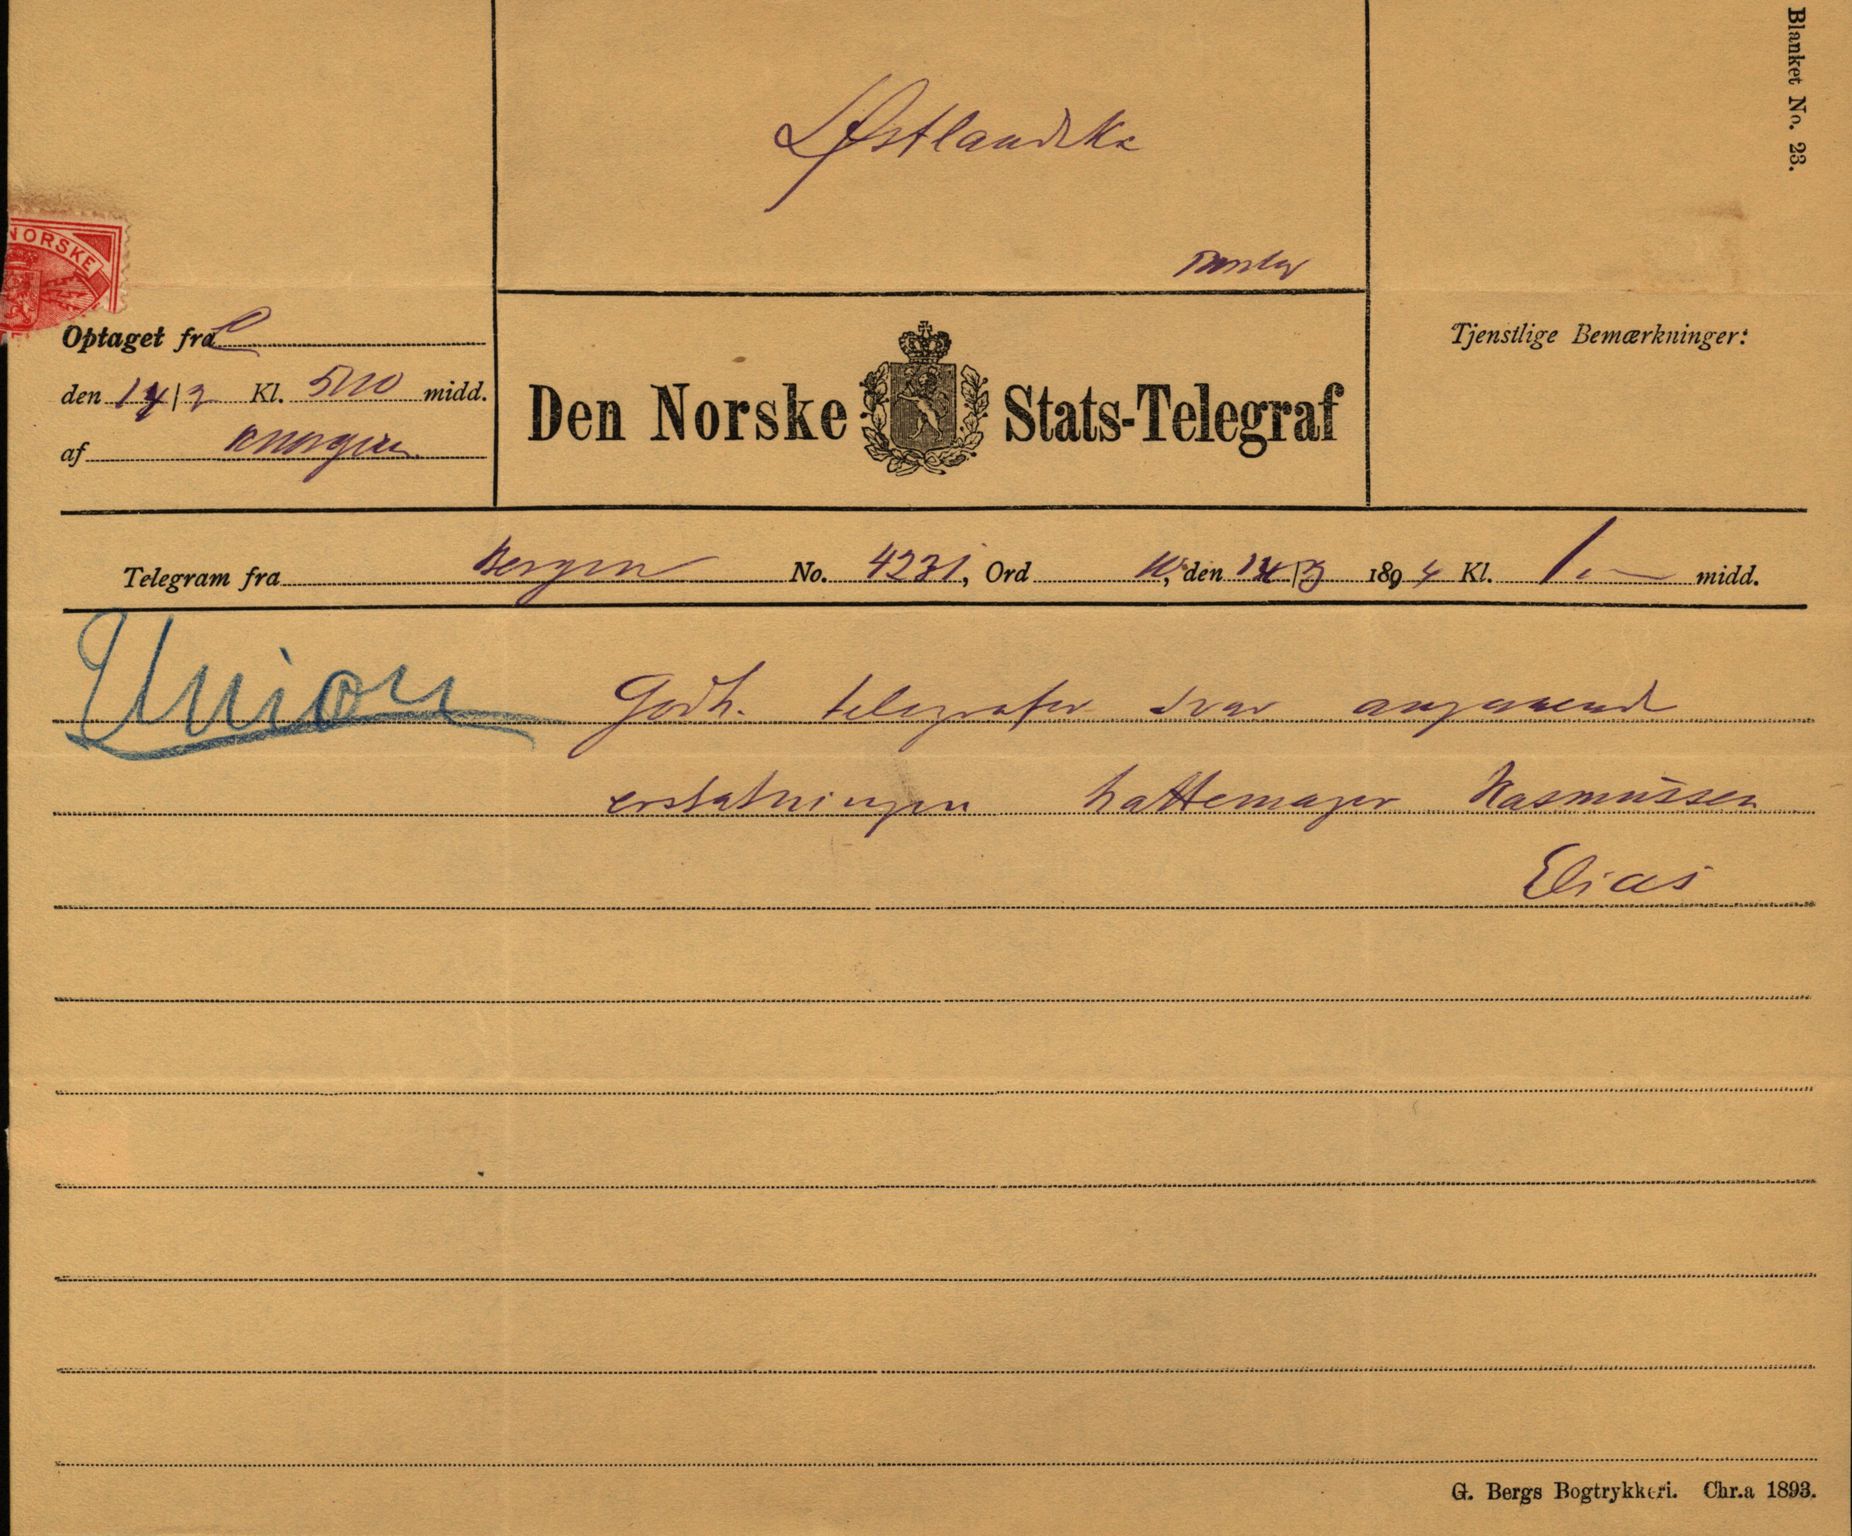 Blanket No. 23.
Østlandske
NORSKE
Optaget fra C
den 14/3 Kl. 5 10 midd.
af
Den Norske Stats-Telegraf
Tjenstlige Bemærkninger:
Telegram fra Bergen No. 4231, Ord 10, den 14/3 1894 Kl. 1 — midd.
Union
Godh. telegrafer svar angaaende
erstatningen hattemager Rasmussen
Elias
G. Bergs Bogtrykkeri. Chr.a 1893.